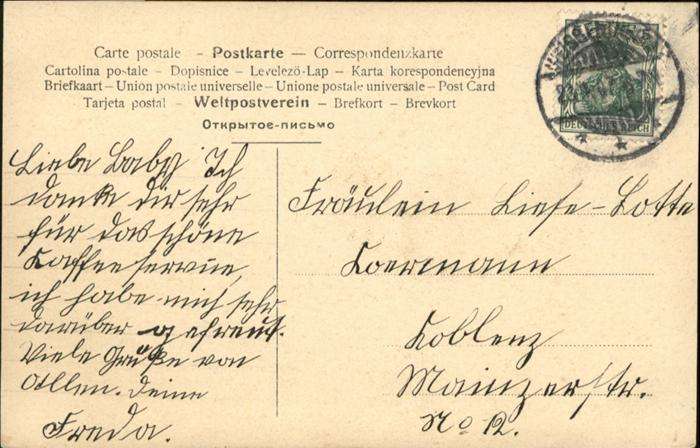 Carte postale – Postkarte — Correspondenzkarte
Cartolina postale – Dopisnice – Levelezö-Lap – Karta korespondencyjna
Briefkaart – Union postale universelle – Unione postale universale – Post Card
Tarjeta postal – Weltpostverein – Brefkort – Brevkort
Открытое-письмо
Liebe Baby Ich
danke dir sehr
für das schöne
Kaffeeservice,
ich habe mich sehr
darüber gefreut.
Viele Grüße von
Allen. Deine
Freda.
Fräulein Liese-Lotte
Koermann
Koblenz
Mainzerstr.
No 12.